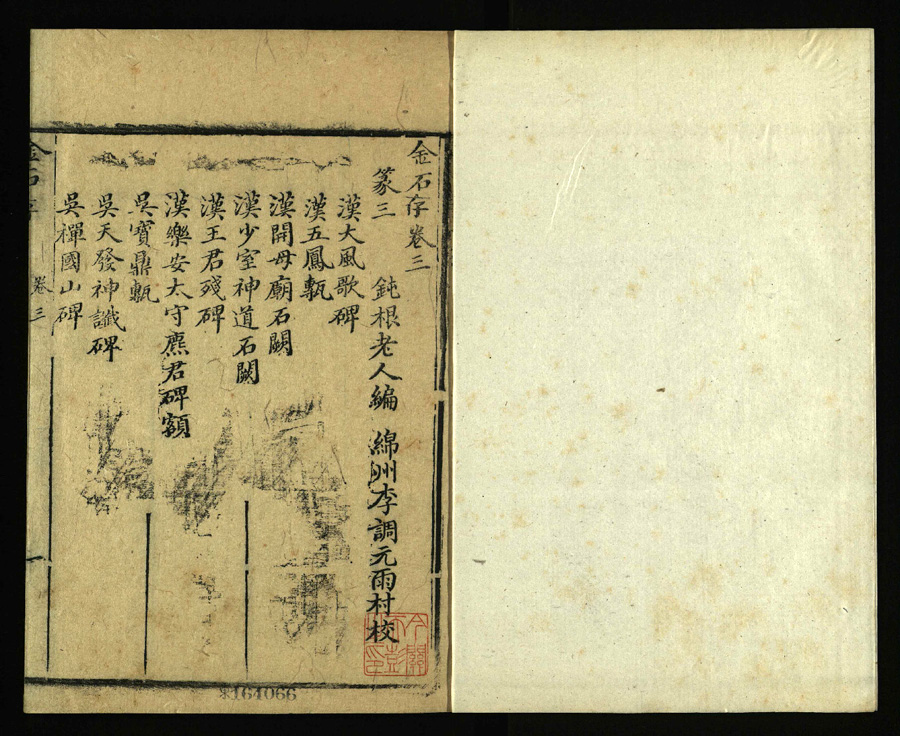 金石存卷三
篆三　鈍根老人編　綿州李調元雨村校
漢大風歌碑
漢五鳳甎
漢開母廟石闕
漢少室神道石闕
漢王君殘碑
漢樂安太守麃君碑額
吳寶鼎甎
吳天發神讖碑
吳禪國山碑
金石存　卷三　一
164066